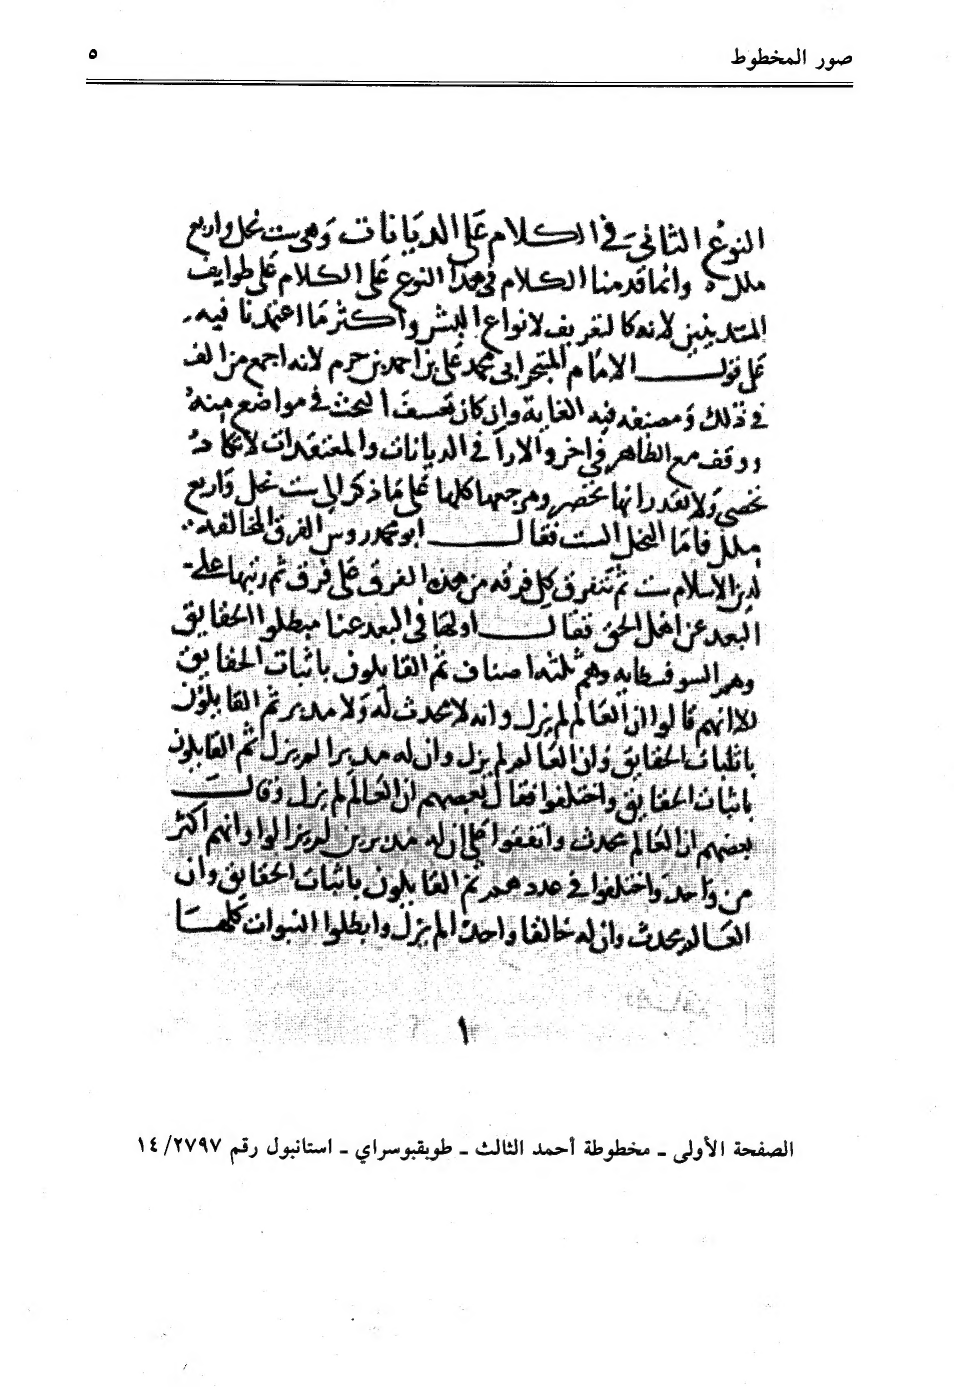 صور المخطوط
٥
النوع الثاني في الكلام على الديانات وهي ست نحل واربع
ملل وانما قدمنا الكلام في هذا النوع على الكلام على طوايف
المتدينين لانه كالتعريف لانواع البشر واكثر ما اعتمدنا فيه
على قول الامام المتبحر ابي محمد علي بن احمد بن حرم لانه اجمع من الف
في ذلك ومصنفه فيه الغاية وان كان تعسف البحث في مواضع منه
ووقف مع الظاهر في اخر والارآ في الديانات والمعتقدات لا تكاد
تحصى ولا نقدر انها تحصر ومرجعها كلها على ما ذكر الى ست نحل واربع
ملل فاما النحل الست فقال ابو محمد روس الفرق المخالفه
لدين الاسلام ست ثم تتفرق كل فرقه من هذه الفرق على فرق ثم رتبها على
البعد عن اهل الحق فقال اولها في البعد عنا مبطلوا الحقايق
وهم السوفسطايه وهم ثلثه اصناف ثم القايلون باثبات الحقايق
الا انهم قالوا ان العالم لم يزل وانه لا محدث له ولا مدبر ثم القايلون
باثبات الحقايق وان العالم لم يزل وان له مدبرا لم يزل ثم القايلون
باثبات الحقايق واختلفوا فقال بعضهم ان العالم لم يزل وقال
بعضهم ان العالم محدث واتفقوا على ان له مدبرين لم يزالوا وانهم اكثر
من واحد واختلفوا في عددهم ثم القايلون باثبات الحقايق وان
العالم محدث وان له خالقا واحدا لم يزل وابطلوا النبوات كلها
١
الصفحة الأولى ـ مخطوطة أحمد الثالث ـ طوبقبوسراي ـ استانبول رقم ١٤/٢٧٩٧